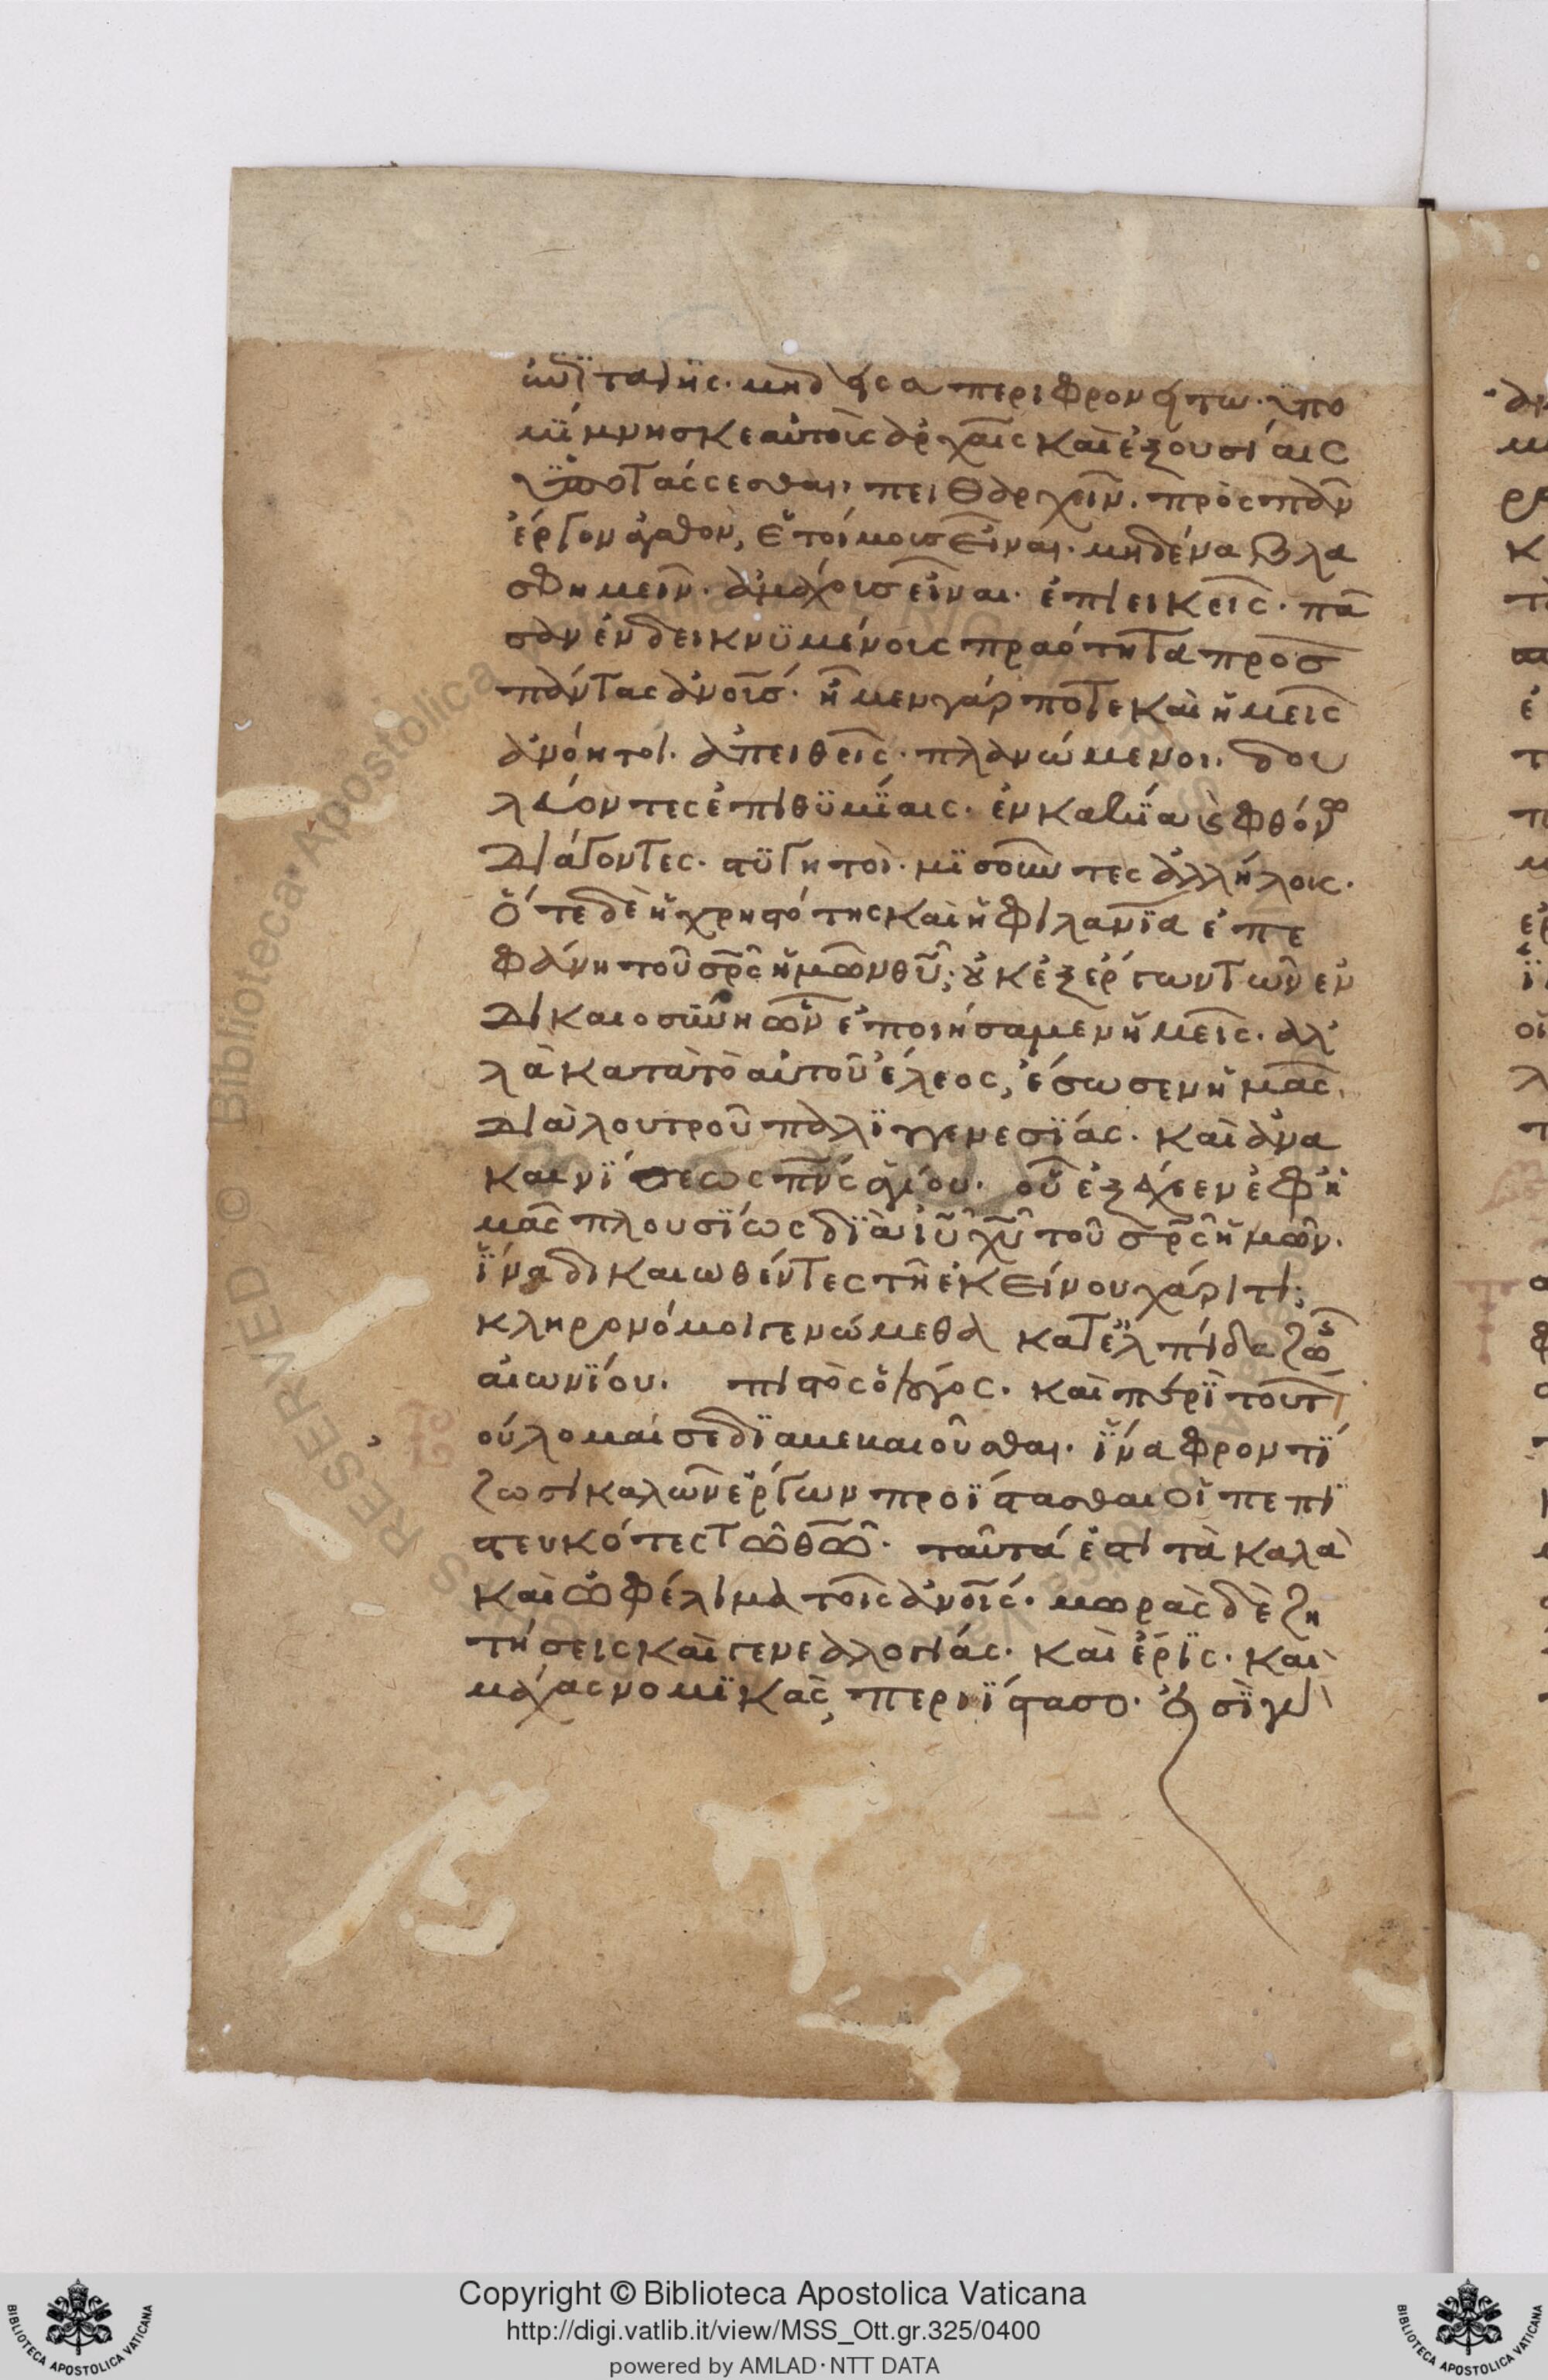 ἐπϊταγῆς· μηδείς σου περιφρονήτω· ὑπο
μΐμνησκε αὐτοὺς ἀρχαῖς καὶ ἐξουσίαις
ὑποτάσσεσθαι· πειθαρχεῖν· πρὸς πᾶν
ἔργον ἀγαθὸν, ἑτοίμους εἶναι· μηδένα βλα
σφημεῖν· ἀμάχους εἶναι· ἐπιεικεῖς· πᾶ
σαν ἐνδεικνϋμένους πραότητα προσ
πάντας ἀνουσ· ἦμεν γάρ ποτε καὶ ἡμεῖς
ἀνόητοι· ἀπειθεῖς· πλανώμενοι· δου
λεύοντες ἐπιθϋμΐαις· ἐν κακΐα ϗ φθόνω
διάγοντες· στϋγητοὶ· μϊσοῦντες ἀλλήλους·
ὅτε δὲ ἡ χρηστότης καὶ ἡ φιλανΐα ἐπε
φάνη τοῦ σρς ἡμῶν θυ; οὐκ ἐξ ἔργων τῶν ἐν
δικαιοσύνη ὧν ἐποιήσαμεν ἡμεῖς· ἀλ
λὰ κατὰ τὸ αὐτοῦ ἔλεος, ἔσωσεν ἡμᾶς.
διὰ λουτροῦ παλϊγγενεσΐας· καὶ ἀνα
καινΐσεως πνς ἁγίου· οὗ ἐξέχεεν ἐφ ἡ
μᾶς πλουσΐως δϊὰ ιυ χυ τοῦ σρς ἡμῶν·
ἵνα δικαιωθέντες τῆ ἐκείνου χάριτι;
κληρονόμοι γενώμεθα κατ ἐλπίδα ζωῆς
αἰωνΐου· πιστὸς ὁ λόγος· καὶ περὶ τούτ
ούλομαί σε δϊαβεβαιοῦσθαι· ἵνα φροντΐ
ζωσι καλῶν ἔργων προΐστασθαι οἱ πεπϊ
στευκότες τῶ θῶ· ταῦτά ἐστι τὰ καλὰ
καὶ ὠφέλιμα τοῖς ἀνοις· μωρὰς δὲ ζη
τήσεις καὶ γενεαλογίας· καὶ ἔρϊς· καὶ
μάχας νομϊκὰς, περιΐστασο· εἰσὶ γὰρ
Copyright © Biblioteca Apostolica Vaticana
http://digi.vatlib.it/view/MSS_Ott.gr.325/0400
powered by AMLAD·NTT DATA